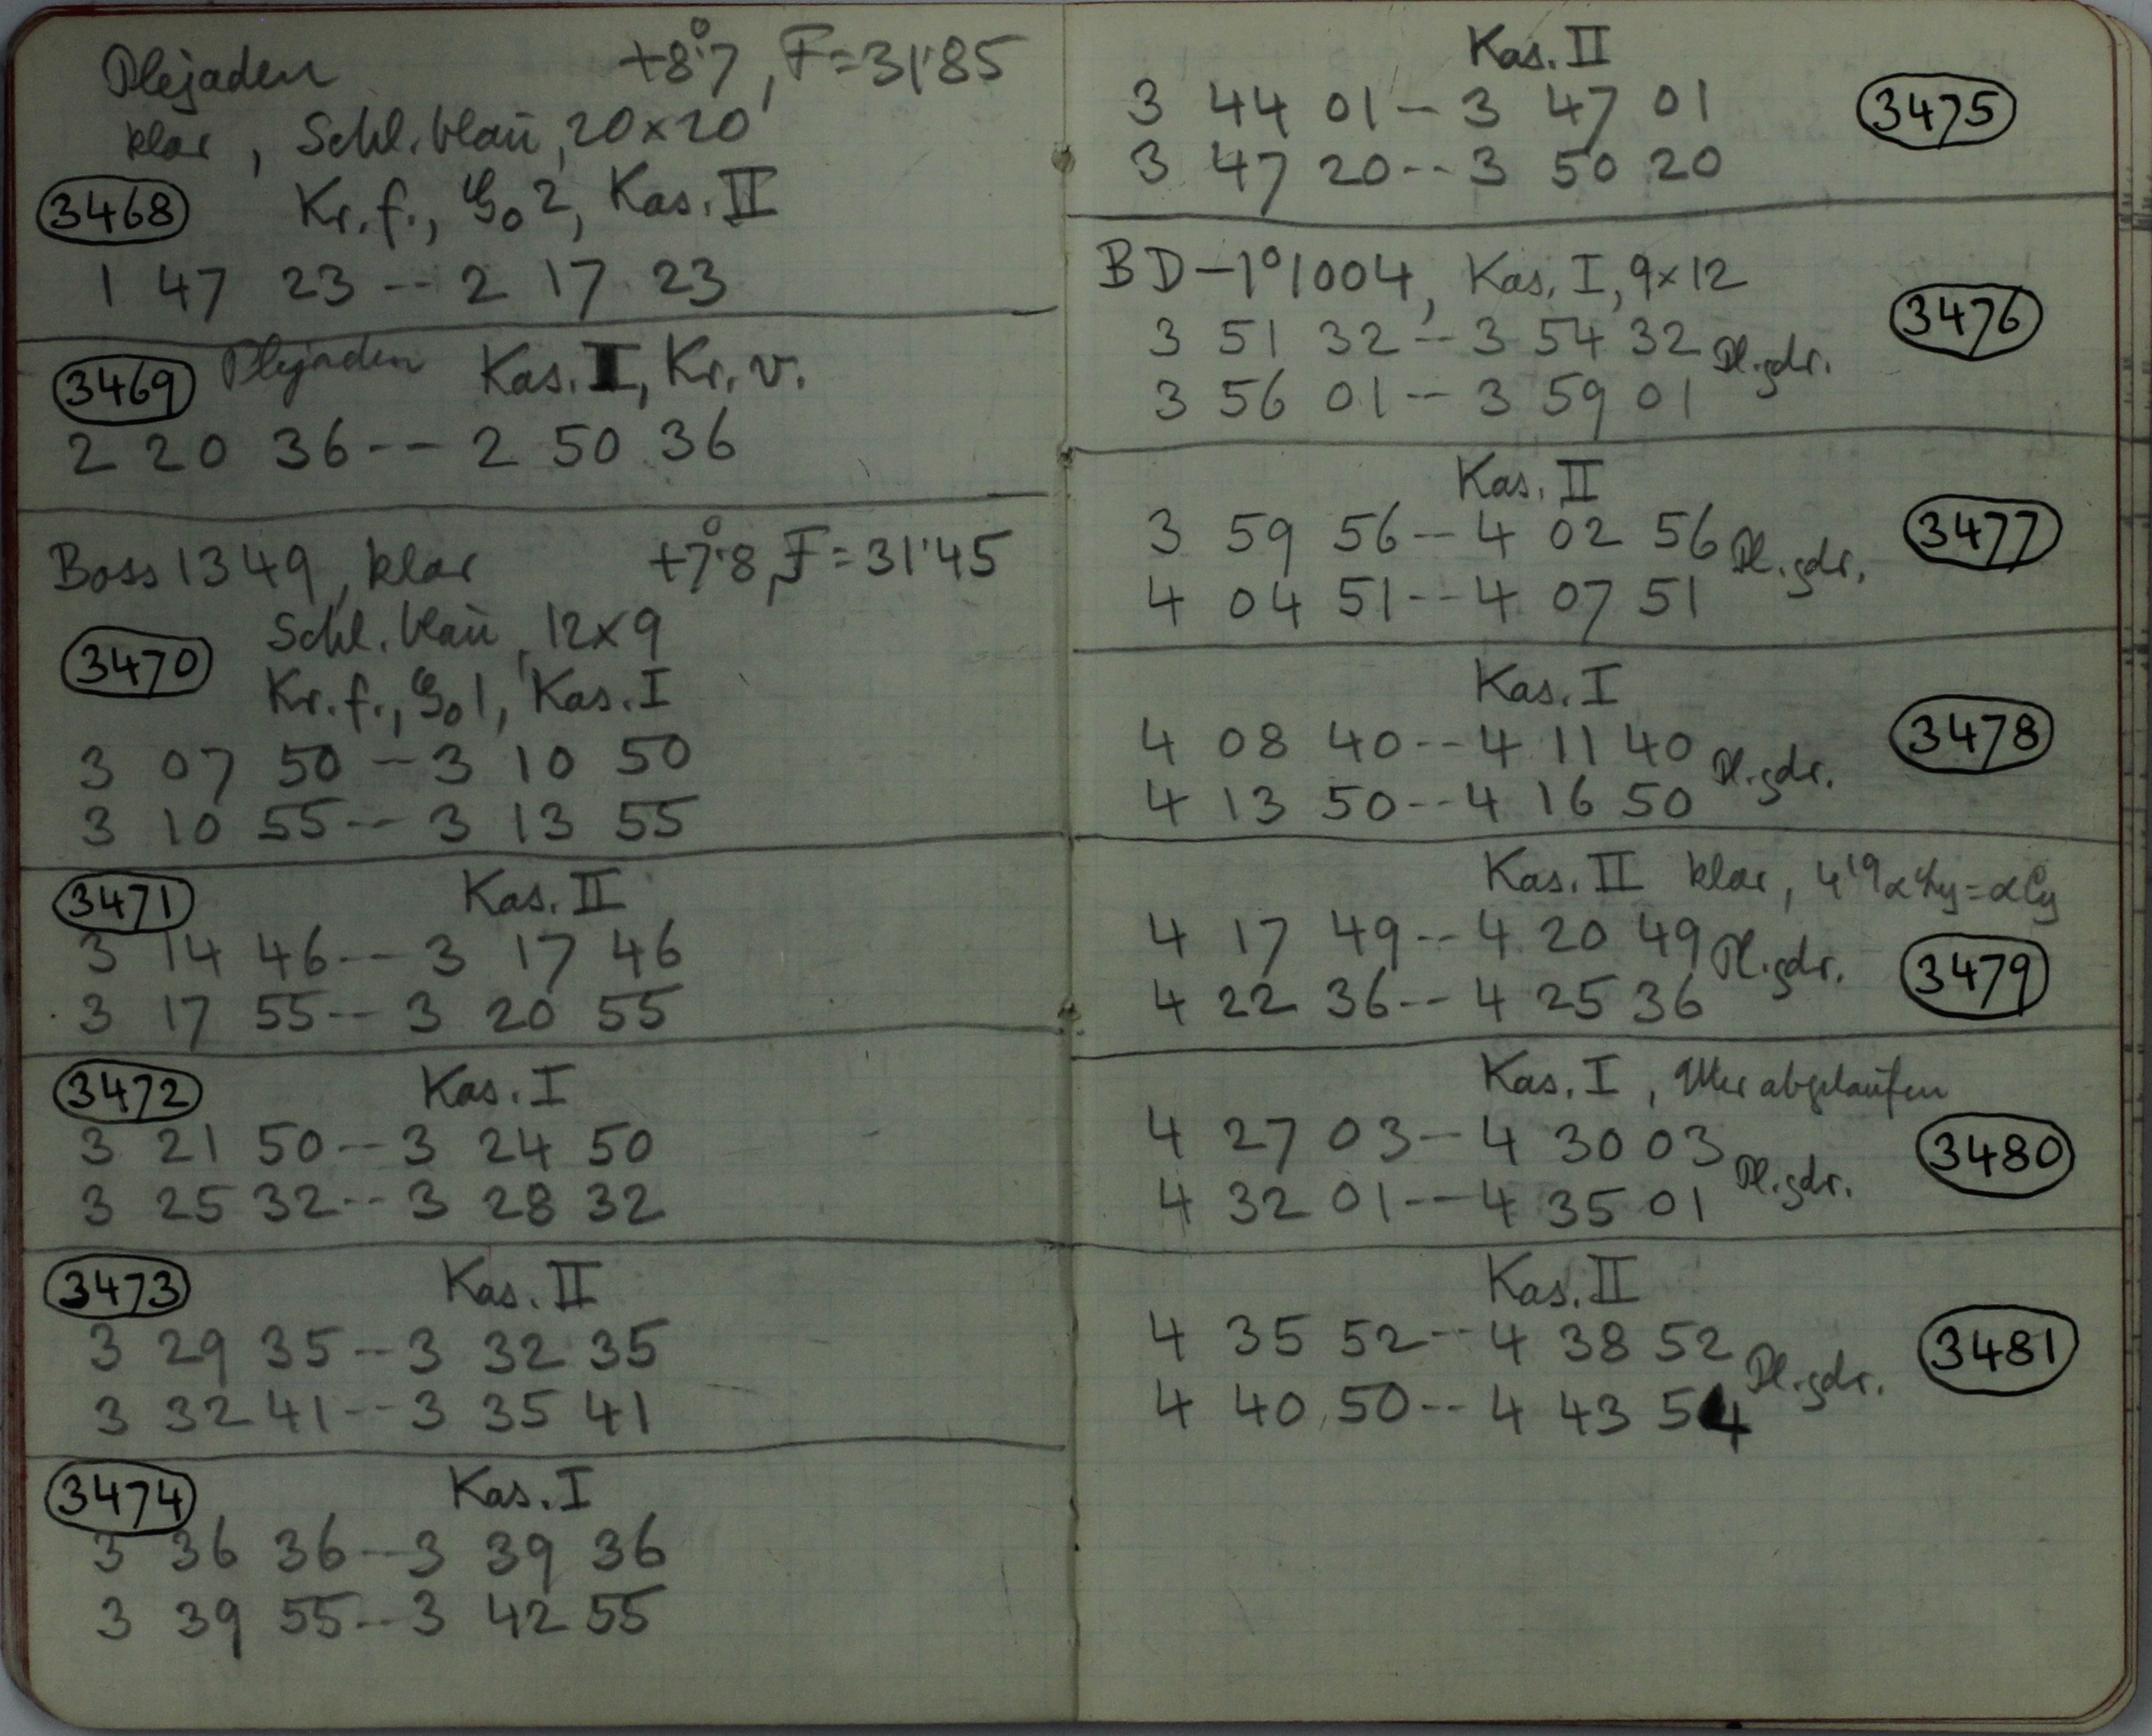 Plejaden +8°.7, F=31'85
klar, Schl. blau, 20×20
3468 Kr. f., 2, Kas. II
1 47 23 -- 2 17 23
3469 Plejaden Kas. I, Kr. v.
2 20 36 -- 2 50 36
Boss 1349, klar +7°.8, F=31'45
Schl. blau, 12×9
3470
Kr. f., 1, Kas. I
3 07 50 -- 3 10 50
3 10 55 -- 3 13 55
3471 Kas. II
3 14 46 -- 3 17 46
3 17 55 -- 3 20 55
3472 Kas. I
3 21 50 -- 3 24 50
3 25 32 -- 3 28 32
3473 Kas. II
3 29 35 -- 3 32 35
3 32 41 -- 3 35 41
3474 Kas. I
3 36 36 -- 3 39 36
3 39 55 -- 3 42 55
Kas. II
3 44 01 -- 3 47 01 3475
3 47 20 -- 3 50 20
BD -1°1004, Kas. I, 9×12
3 51 32 -- 3 54 32 Pl. gdr. 3476
3 56 01 -- 3 59 01
Kas. II
3 59 56 -- 4 02 56 Pl. gdr. 3477
4 04 51 -- 4 07 51
Kas. I
4 08 40 -- 4 11 40 Pl. gdr. 3478
4 13 50 -- 4 16 50
Kas. II klar,
4 17 49 -- 4 20 49 Pl. gdr. 3479
4 22 36 -- 4 25 36
Kas. I, Uhr abgelaufen
4 27 03 -- 4 30 03 Pl. gdr. 3480
4 32 01 -- 4 35 01
Kas. II
4 35 52 -- 4 38 52 Pl. gdr. 3481
4 40 50 -- 4 43 54